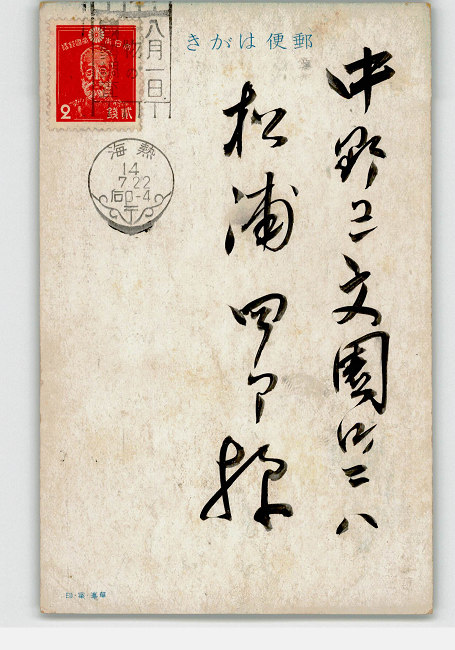 郵便はがき
中野区文園町二八
松浦四郎様
大日本帝國郵便
2 貳錢
八月一日
熱海
14
7.22
后0-4